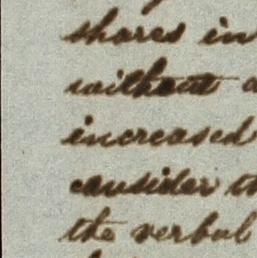 shares in
without a
increased
consider th
the verbal